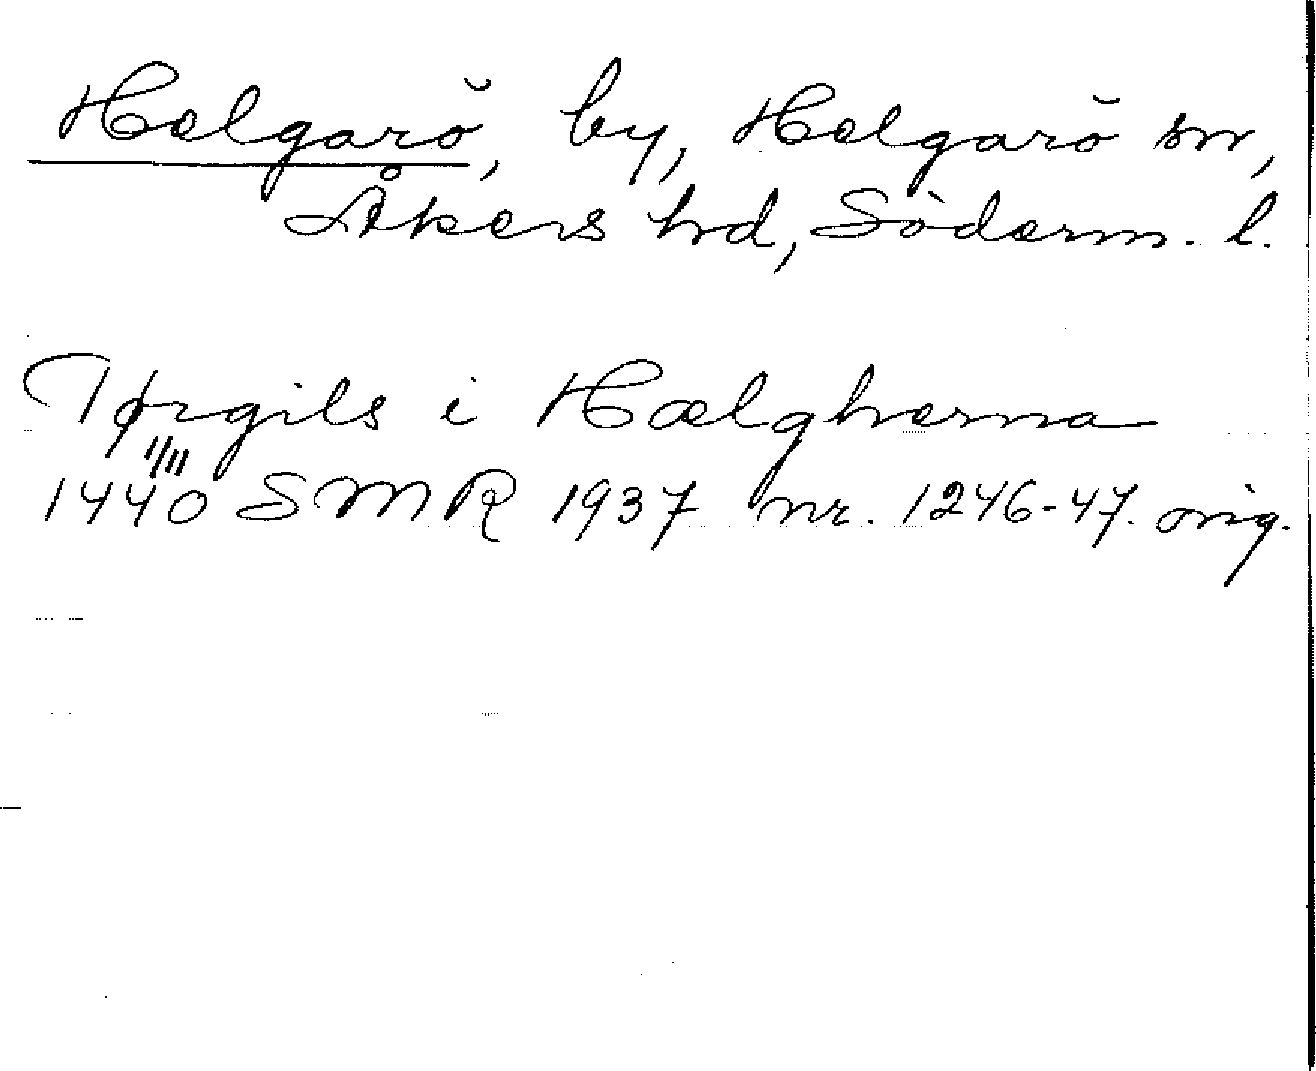 Helgarö, by, Helgarö sn,
Åkers hd, Söderm. l.
Thørgils i Hælgherna
1/11
1440 SMR 1937 nr. 1246-47. orig.